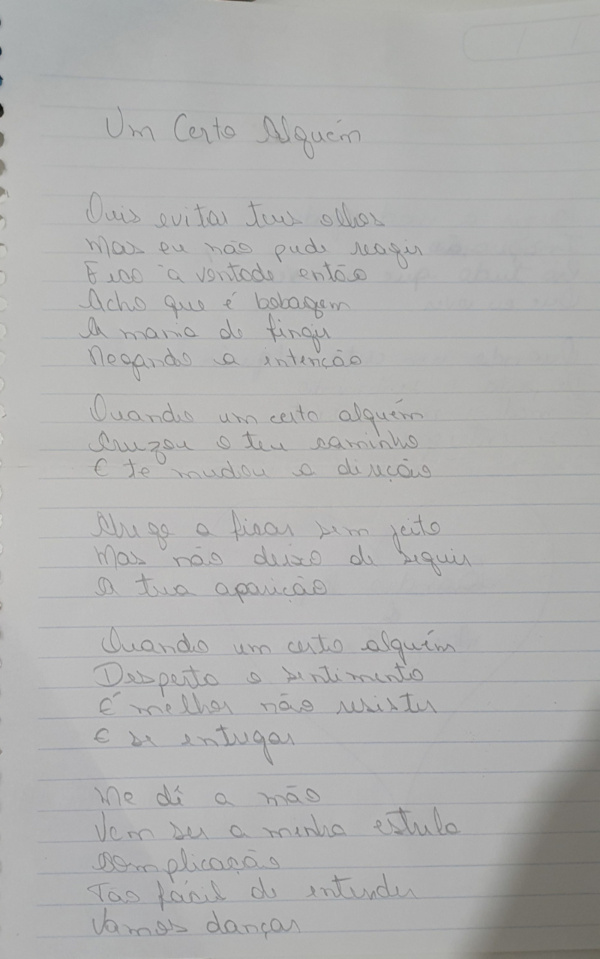 Um Certo Alguém
Quis evitar teus olhos
Mas eu não pude reagir
Fico à vontade então
Acho que é bobagem
A mania de fingir
Negando a intenção
Quando um certo alguém
Cruzou o teu caminho
E te mudou a direção
Chego a ficar sem jeito
Mas não deixo de seguir
A tua aparição
Quando um certo alguém
Desperta o sentimento
É melhor não resistir
E se entregar
Me dê a mão
Vem ser a minha estrela
Complicação
Tão fácil de entender
Vamos dançar